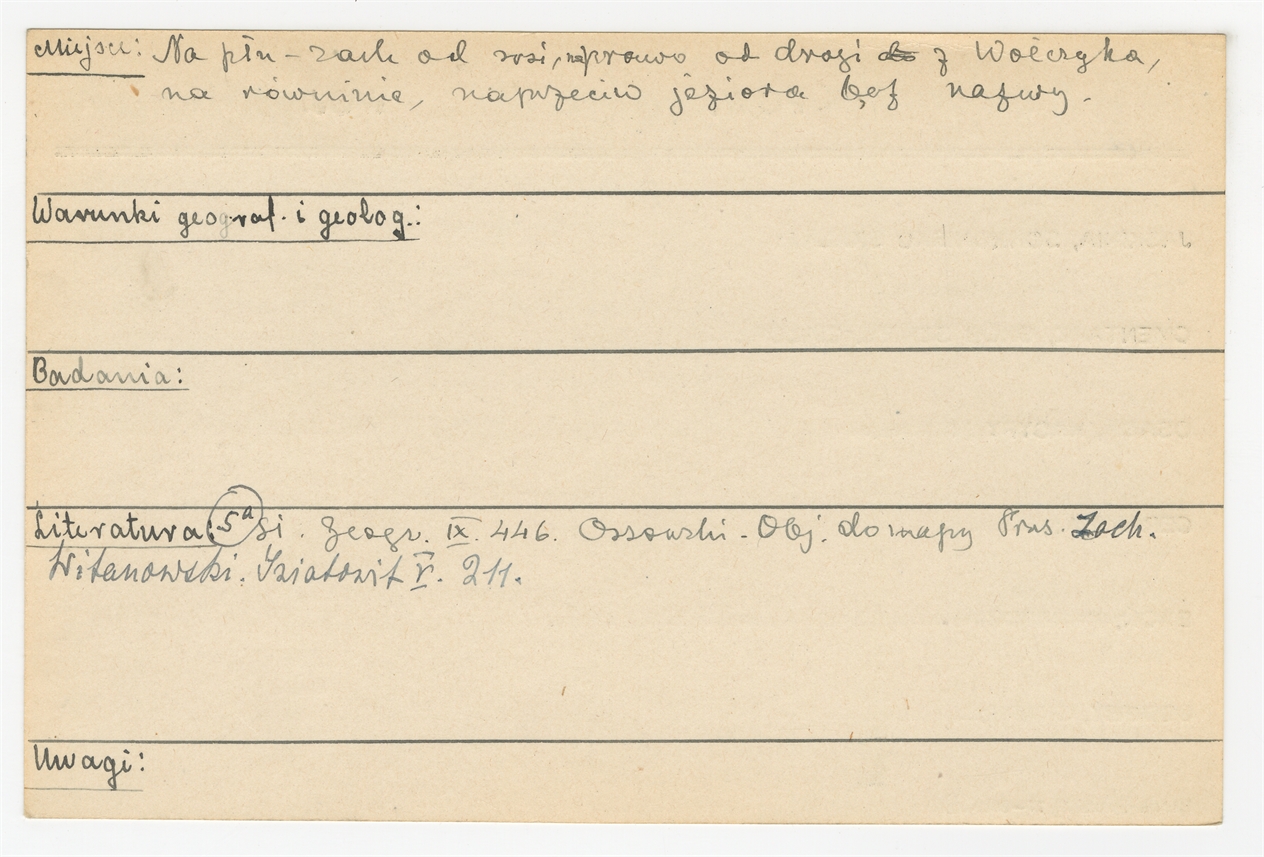 Miejsce: Na płn-zach od wsi, naprawo od drogi z Wolczyka,
na równinie, naprzeciw jeziora bez nazwy.
Warunki geograf. i geolog.:
Badania:
Literatura: 5a Sł. Geogr. IX. 446. Ossowski - Obj. do mapy Prus. Zach.
Witanowski. Światowit V. 211.
Uwagi: